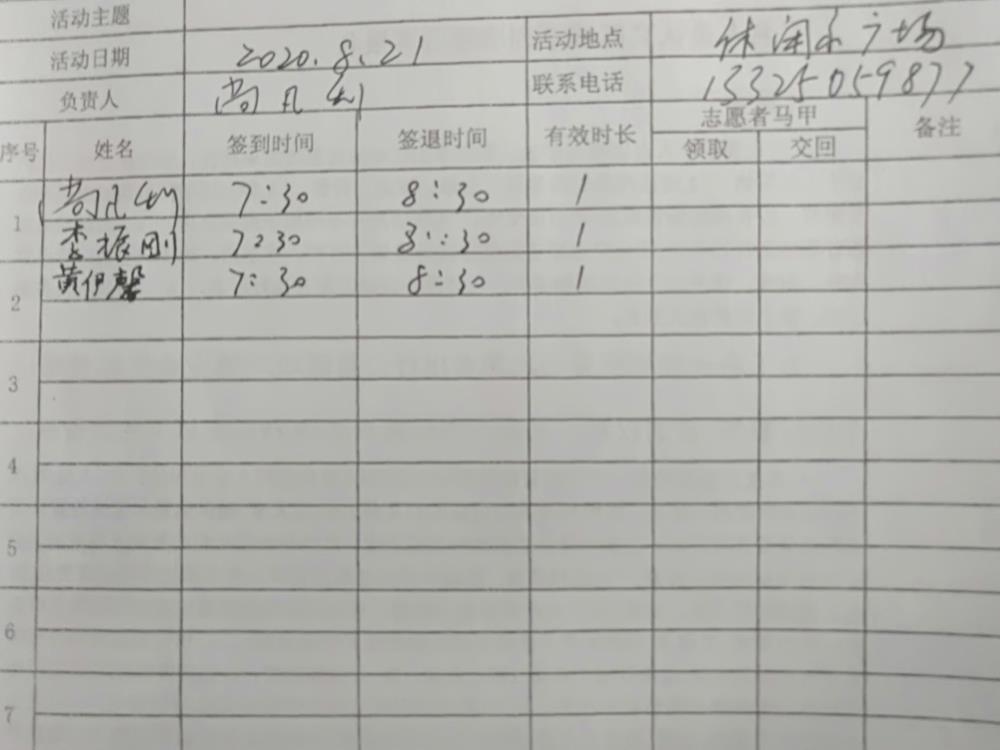 活动主题
活动日期 2020.8.21 活动地点 休闲 广场
负责人 尚凡 联系电话 13325059877
序号 姓名 签到时间 签退时间 有效时长 志愿者马甲 备注
领取 交回
1 尚凡 7:30 8:30 1
李振刚 7:30 8:30 1
2 黄伊馨 7:30 8:30 1
3
4
5
6
7